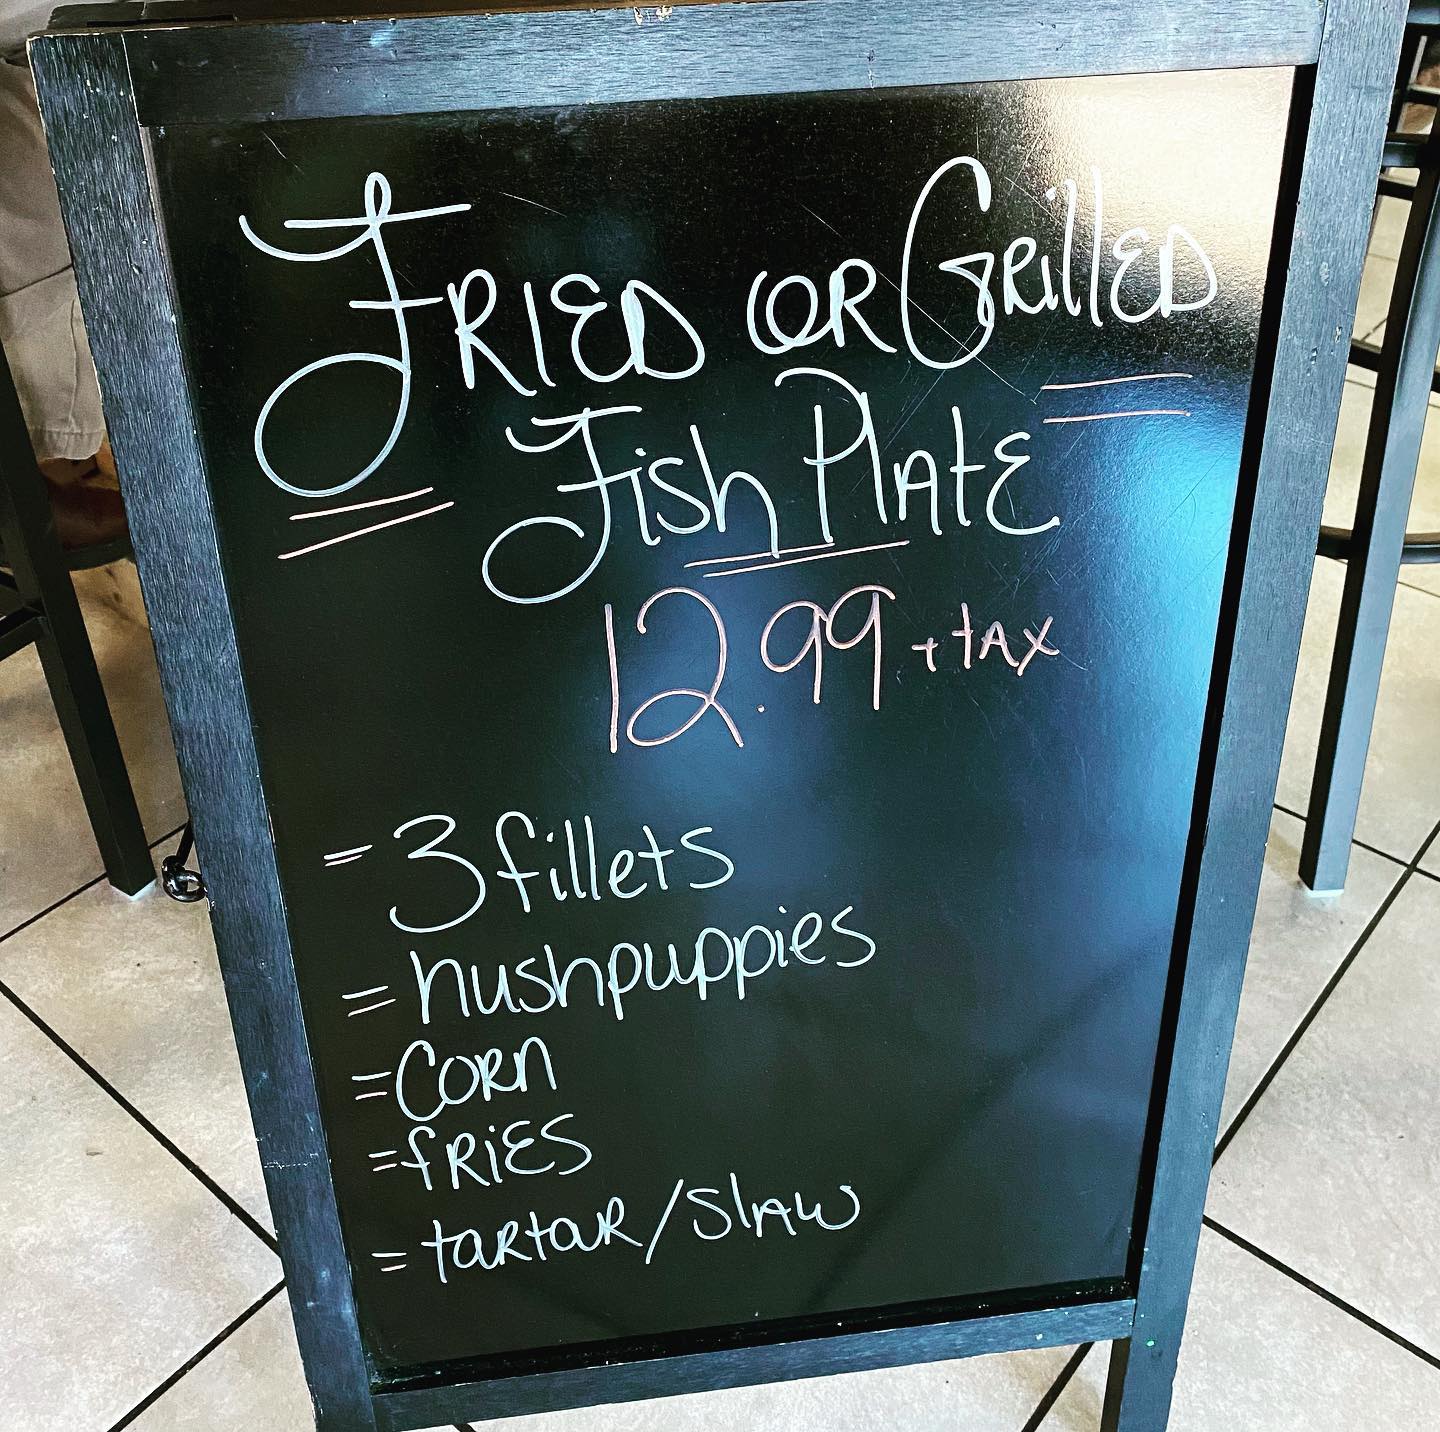 FRIED OR GRillED
Fish PlAtE
12.99 + tAX
= 3 fillets
= hushpuppies
= CORn
= fRiES
= taRtaR/SlAw